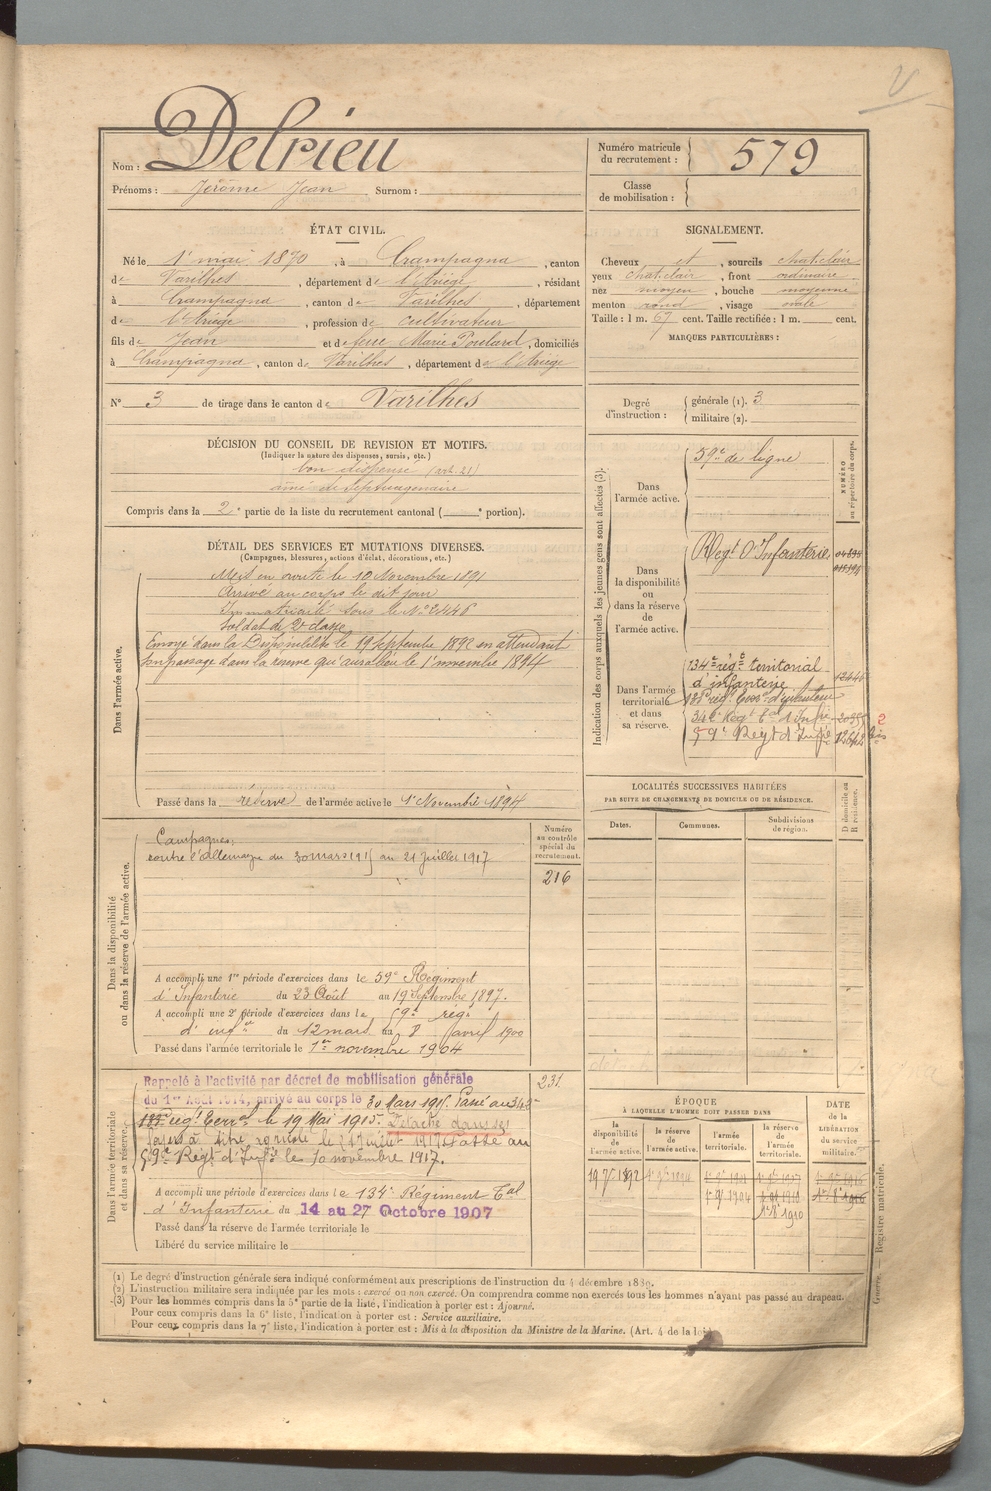 Delrieu
Nom :
Prénoms : Jérôme Jean Surnom :
Numéro matricule
du recrutement : 579
Classe
de mobilisation :
ÉTAT CIVIL.
Né le 1er mai 1870, à Crampagna, canton
de Varilhes, département de l'Ariège, résidant
à Crampagna, canton de Varilhes, département
de l'Ariège, profession de cultivateur
fils de Jean et de feue Marie Poulard, domiciliés
à Crampagna, canton de Varilhes, département de l'Ariège
N° 3 de tirage dans le canton de Varilhes
SIGNALEMENT.
Cheveux et, sourcils chat. clair
yeux chat. clair, front ordinaire
nez moyen, bouche moyenne
menton rond, visage ovale
Taille : 1 m. 67 cent. Taille rectifiée : 1 m. cent.
MARQUES PARTICULIÈRES :
Degré
d'instruction :
générale (1). 3
militaire (2).
DÉCISION DU CONSEIL DE REVISION ET MOTIFS.
(Indiquer la nature des dispenses, sursis, etc.)
bon dispensé (art. 21)
aîné de septuagénaire
Compris dans la 2e partie de la liste du recrutement cantonal ( e portion).
DÉTAIL DES SERVICES ET MUTATIONS DIVERSES.
(Campagnes, blessures, actions d'éclat, décorations, etc.)
Dans l'armée active.
Mis en route le 10 Novembre 1891
Arrivé au corps le dit jour
Immatriculé sous le N° 2446
Soldat de 2e classe
Envoyé dans la Disponibilité le 19 Septembre 1892 en attendant
son passage dans la réserve qui aura lieu le 1er novembre 1894
Passé dans la réserve de l'armée active le 1er Novembre 1894
Indication des corps auxquels les jeunes gens sont affectés (3).
NUMÉRO
au répertoire du corps.
Dans
l'armée active.
59e de ligne
Dans
la disponibilité
ou
dans la réserve
de
l'armée active.
Regt d'Infanterie
Dans l'armée
territoriale
et dans
sa réserve.
134e rég. territorial
d'infanterie
59e Regt d'Infie
2
bis
LOCALITÉS SUCCESSIVES HABITÉES
PAR SUITE DE CHANGEMENTS DE DOMICILE OU DE RÉSIDENCE.
D domicile ou
R résidence.
Dates.
Communes.
Subdivisions
de région.
Dans la disponibilité
ou dans la réserve de l'armée active.
Campagnes :
contre l'Allemagne du 30 mars 1915 au 21 Juillet 1917
Numéro
au contrôle
spécial du
recrutement.
216
A accompli une 1re période d'exercices dans le 59e Régiment
d'Infanterie du 23 Août au 19 Septembre 1897.
A accompli une 2e période d'exercices dans le 59e régt
d'infie du 12 mars au 8 avril 1900
Passé dans l'armée territoriale le 1er novembre 1904
Dans l'armée territoriale
et dans sa réserve.
Rappelé à l'activité par décret de mobilisation générale
du 1er Août 1914, arrivé au corps le 30 Mars 1915. Passé au
régt Terral le 19 Mai 1915. Détaché dans ses
foyers à titre agricole le 21 juillet 1917. Passé au
59e Regt d'Infie le 10 novembre 1917.
231
A accompli une période d'exercices dans le 134e Régiment Tal
d'Infanterie du 14 au 27 Octobre 1907
Passé dans la réserve de l'armée territoriale le
Libéré du service militaire le
ÉPOQUE
À LAQUELLE L'HOMME DOIT PASSER DANS
la
disponibilité
de
l'armée active.
la réserve
de
l'armée active.
l'armée
territoriale.
la réserve
de
l'armée
territoriale.
DATE
de la
LIBÉRATION
du service
militaire.
(1) Le degré d'instruction générale sera indiqué conformément aux prescriptions de l'instruction du 4 décembre 1889.
(2) L'instruction militaire sera indiquée par les mots : exercé ou non exercé. On comprendra comme non exercés tous les hommes n'ayant pas passé au drapeau.
(3) Pour les hommes compris dans la 5e partie de la liste, l'indication à porter est : Ajourné.
Pour ceux compris dans la 6e liste, l'indication à porter est : Service auxiliaire.
Pour ceux compris dans la 7e liste, l'indication à porter est : Mis à la disposition du Ministre de la Marine. (Art. 4 de la loi)
Guerre. — Registre matricule.